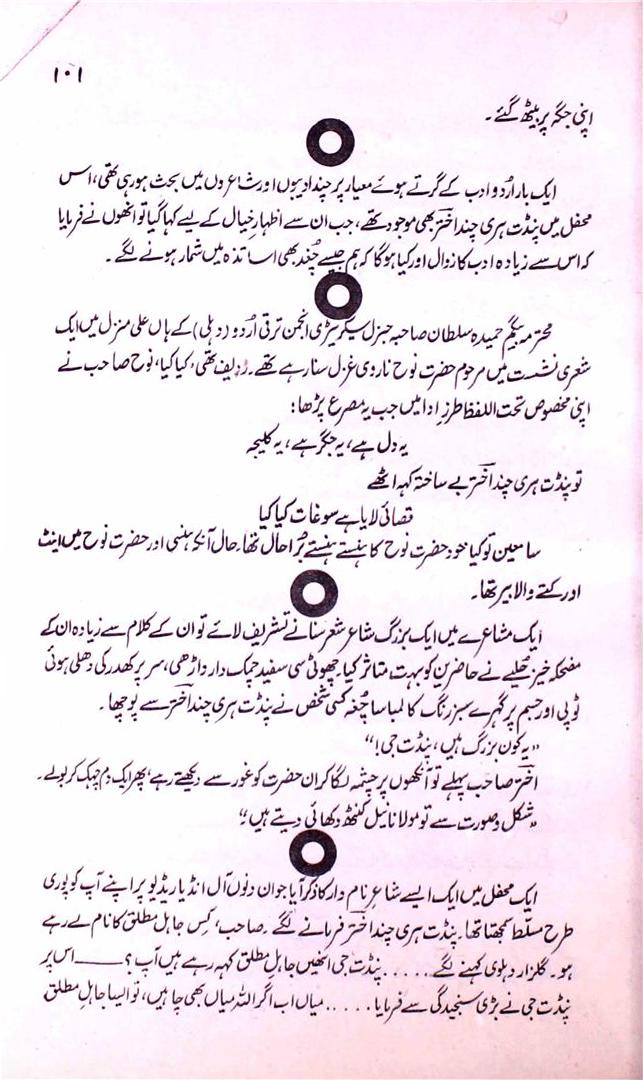 ۱۰۱
اپنی جگہ پر بیٹھ گئے۔
ایک بار اُردو ادب کے گرتے ہوئے معیار پر چند ادیبوں اور شاعروں میں بحث ہو رہی تھی، اس
محفل میں پنڈت ہری چند اخترؔ بھی موجود تھے، جب ان سے اظہارِ خیال کے لیے کہا گیا تو انھوں نے فرمایا
کہ اس سے زیادہ ادب کا زوال اور کیا ہوگا کہ ہم جیسے چُغد بھی اساتذہ میں شمار ہونے لگے۔
محترمہ بیگم حمیدہ سلطان صاحبہ جنرل سیکریٹری انجمن ترقی اُردو (دہلی) کے ہاں علی منزل میں ایک
شعری نشست میں مرحوم حضرت نوح ناروی غزل سنا رہے تھے۔ ردیف تھی، کیا کیا، نوح صاحب نے
اپنی مخصوص تحت اللفظ طرزِ ادا میں جب یہ مصرع پڑھا:
یہ دل ہے، یہ جگر ہے، یہ کلیجہ
تو پنڈت ہری چند اخترؔ بے ساختہ کہہ اٹھے
قصائی لایا ہے سوغات کیا کیا
سامعین تو کیا خود حضرت نوح کا ہنستے ہنستے بُرا حال تھا۔ حال آنکہ ہنسی اور حضرت نوح میں اینٹ
اور کتے والا بیر تھا۔
ایک مشاعرے میں ایک بزرگ شاعر شعر سنانے تشریف لائے تو ان کے کلام سے زیادہ ان کے
مضحکہ خیز حلیے نے حاضرین کو بہت متاثر کیا۔ چھوٹی سی سفید چمک دار داڑھی، سر پر کھدر کی دھلی ہوئی
ٹوپی اور جسم پر گہرے سبز رنگ کا لمبا سا چُغہ کسی شخص نے پنڈت ہری چند اخترؔ سے پوچھا۔
”یہ کون بزرگ ہیں، پنڈت جی!“
اخترؔ صاحب پہلے تو آنکھوں پر چشمہ لگا کر ان حضرت کو غور سے دیکھتے رہے، پھر ایک دم چہک کر بولے۔
”شکل و صورت سے تو مولانا نیل کنٹھ دکھائی دیتے ہیں؛“
ایک محفل میں ایک ایسے شاعرِ نام دار کا ذکر آیا جو ان دنوں آل انڈیا ریڈیو پر اپنے آپ کو پوری
طرح مسلّط سمجھتا تھا۔ پنڈت ہری چند اخترؔ فرمانے لگے۔ صاحب، کس جاہلِ مطلق کا نام لے رہے
ہو۔ گلزار دہلوی کہنے لگے ..... پنڈت جی انھیں جاہلِ مطلق کہہ رہے ہیں آپ؟ —— اس پر
پنڈت جی نے بڑی سنجیدگی سے فرمایا ..... میاں اب اگر اللہ میاں بھی چاہیں، تو ایسا جاہلِ مطلق